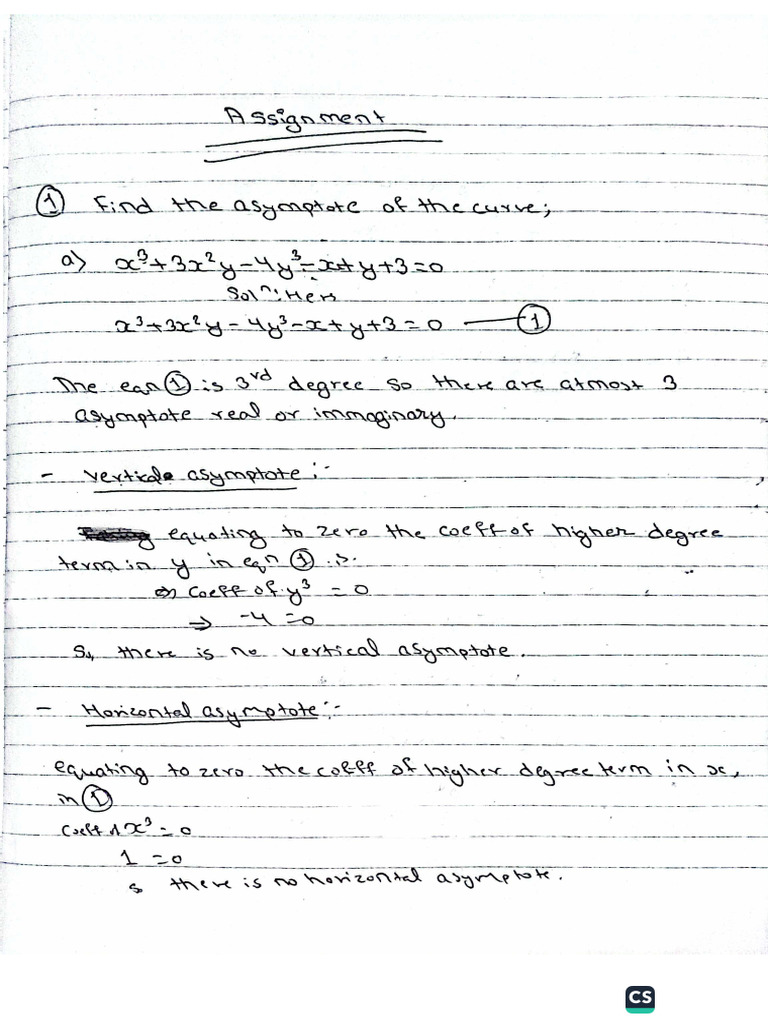 Assignment
① Find the asymptote of the curve;
a) x³+3x²y-4y³-x+y+3=0
Solⁿ: Here
x³+3x²y-4y³-x+y+3=0 —— ①
The eqn ① is 3rd degree so there are atmost 3
asymptote real or immaginary.
- Verticale asymptote:-
equating to zero the coeff of higher degree
term in y in eqn ① is.
⇒ coeff of y³ = 0
⇒ -4=0
So, there is no vertical asymptote.
- Horizontal asymptote:-
equating to zero the coeff of higher degree term in x,
in ①
coeff of x³=0
1=0
s there is no horizontal asymptote.
CS